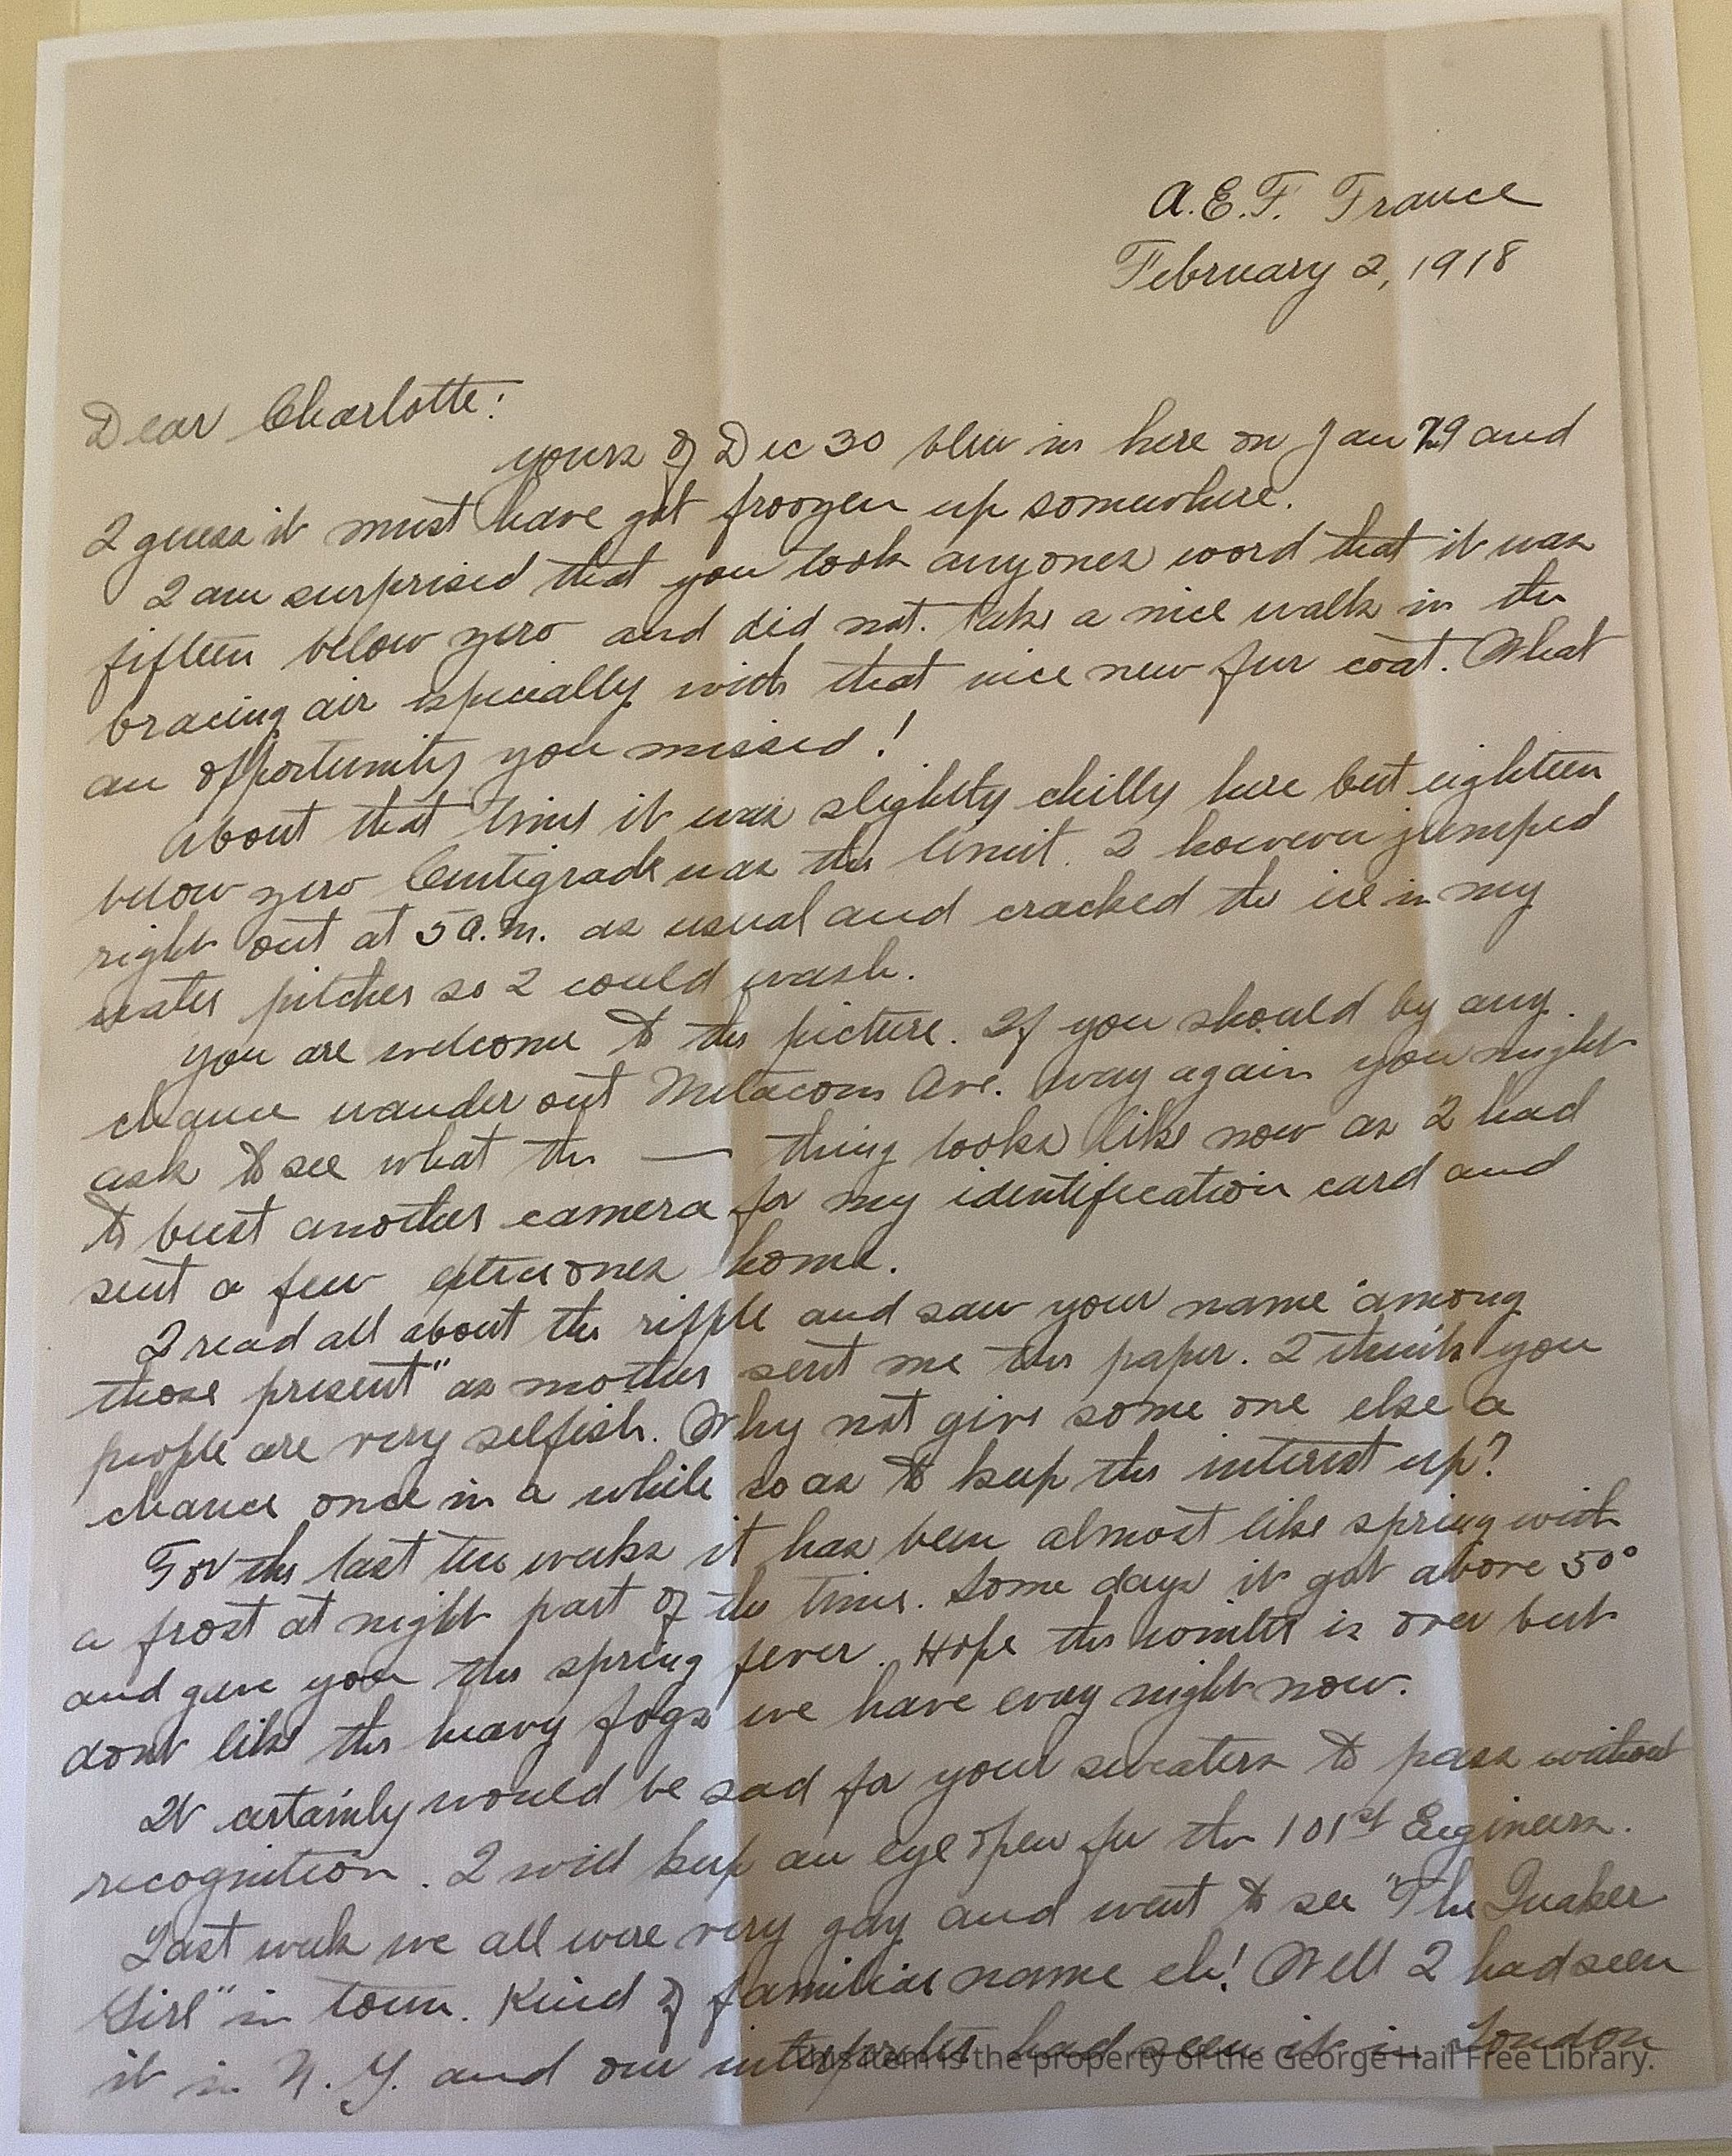 A.E.F. France
February 2, 1918
Dear Charlotte:
yours of Dec 30 blew in here on Jan 29 and
I guess it must have got froozen up somewhere.
I am surprised that you took anyones word that it was
fifteen below zero and did not. take a nice walk in the
bracing air especially with that nice new fur coat. What
an opportunity you missed!
About that time it was slightly chilly here but eighteen
below zero Centigrade was the limit. I however jumped
right out at 5 a.m. as usual and cracked the ice in my
water pitcher so I could wash.
You are welcome to the picture. If you should by any
chance wander out Metacom Ave. way again you might
ask to see what the — thing looks like now as I had
to bust another camera for my identification card and
sent a few extra ones home.
I read all about the ripple and saw your name "among
those present" as mother sent me the paper. I think you
people are very selfish. Why not give some one else a
chance once in a while so as to keep the interest up?
For the last two weeks it has been almost like spring with
a frost at night part of the time. Some days it got above 50°
and gave you the spring fever. Hope the winter is over but
dont like the heavy fogs we have every night now.
It certainly would be sad for your sweaters to pass without
recognition. I will keep an eye open for the 101st Engineers.
Last week we all were very gay and went to see "The Quaker
Girl" in town. Kind of familiar name eh! Well I had seen
it in N.Y. and our interpreter had seen it in London
This item is the property of the George Hail Free Library.